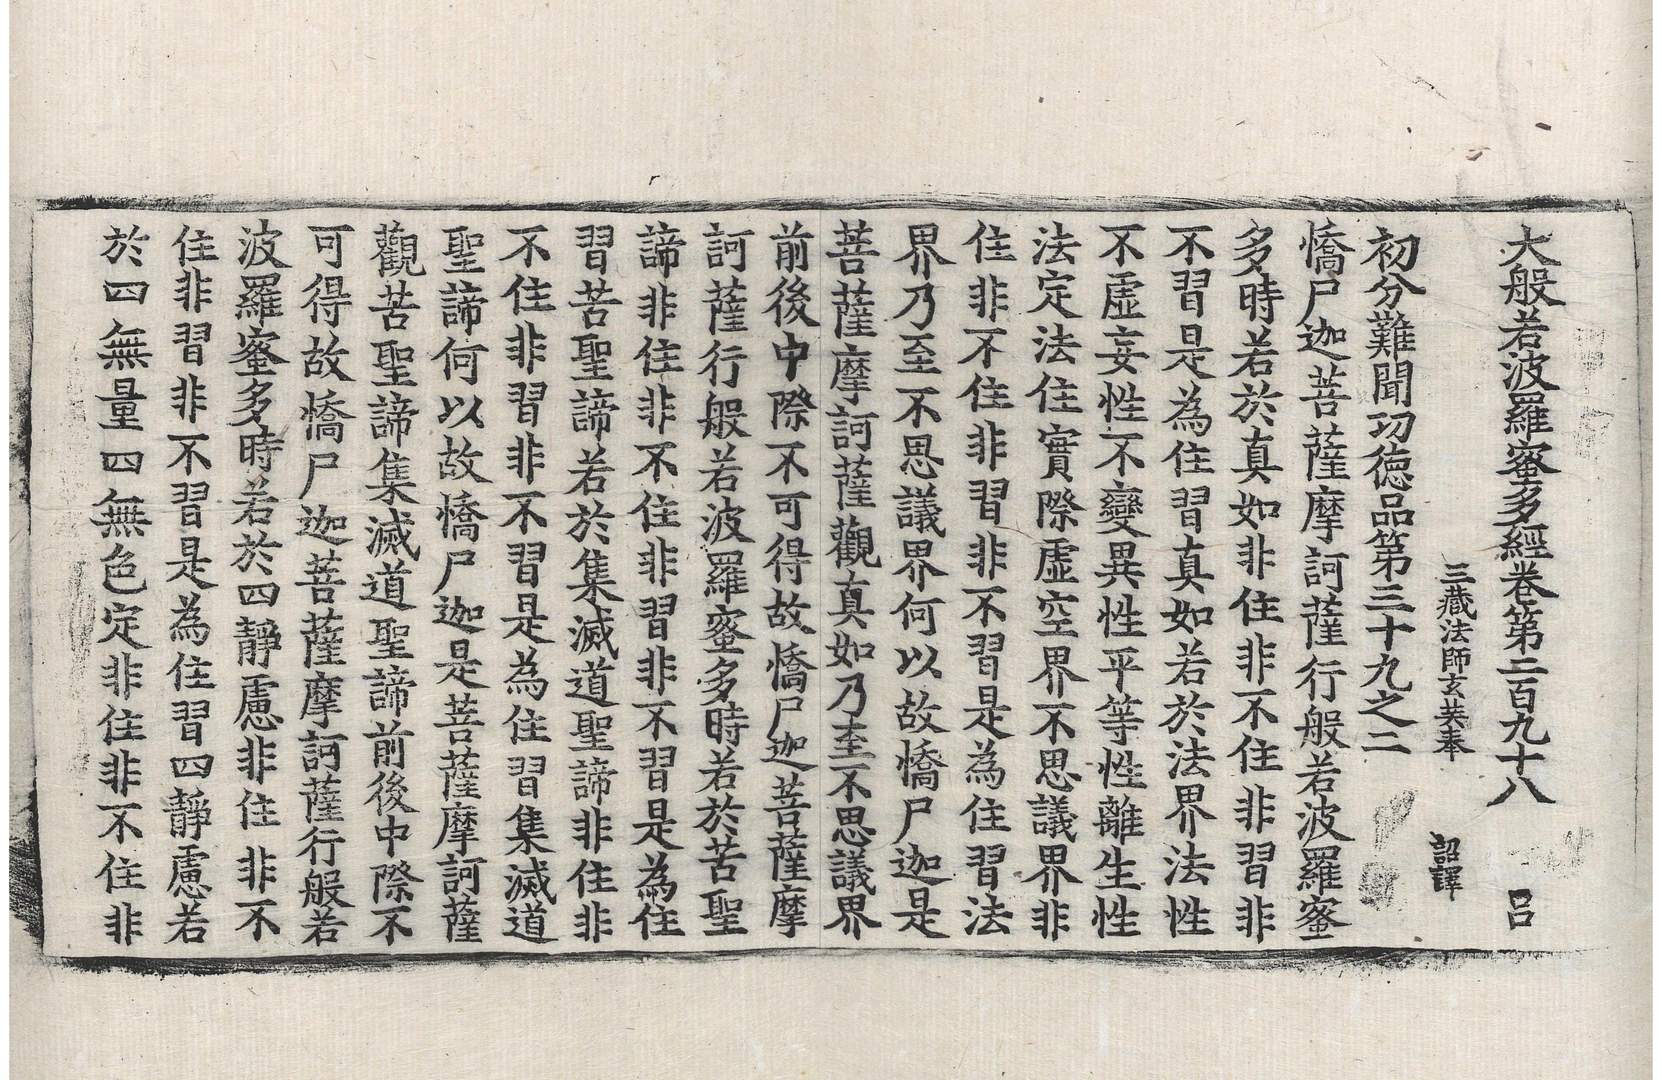 大般若波羅蜜多經卷第二百九十八 呂
三藏法師玄奘奉 詔譯
初分難聞功德品第三十九之二
憍尸迦菩薩摩訶薩行般若波羅蜜
多時若於真如非住非不住非習非
不習是為住習真如若於法界法性
不虛妄性不變異性平等性離生性
法定法住實際虛空界不思議界非
住非不住非習非不習是為住習法
界乃至不思議界何以故憍尸迦是
菩薩摩訶薩觀真如乃至不思議界
前後中際不可得故憍尸迦菩薩摩
訶薩行般若波羅蜜多時若於苦聖
諦非住非不住非習非不習是為住
習苦聖諦若於集滅道聖諦非住非
不住非習非不習是為住習集滅道
聖諦何以故憍尸迦是菩薩摩訶薩
觀苦聖諦集滅道聖諦前後中際不
可得故憍尸迦菩薩摩訶薩行般若
波羅蜜多時若於四靜慮非住非不
住非習非不習是為住習四靜慮若
於四無量四無色定非住非不住非